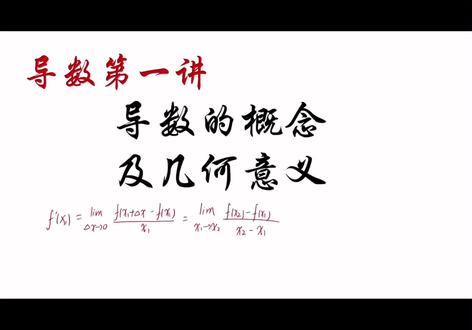 导数第一讲
导数的概念
及几何意义
f'(x₁) = lim Δx→0 f(x₁+Δx - f(x₁) / x₁ = lim x₁→x₂ f(x₂)-f(x₁) / x₂ - x₁